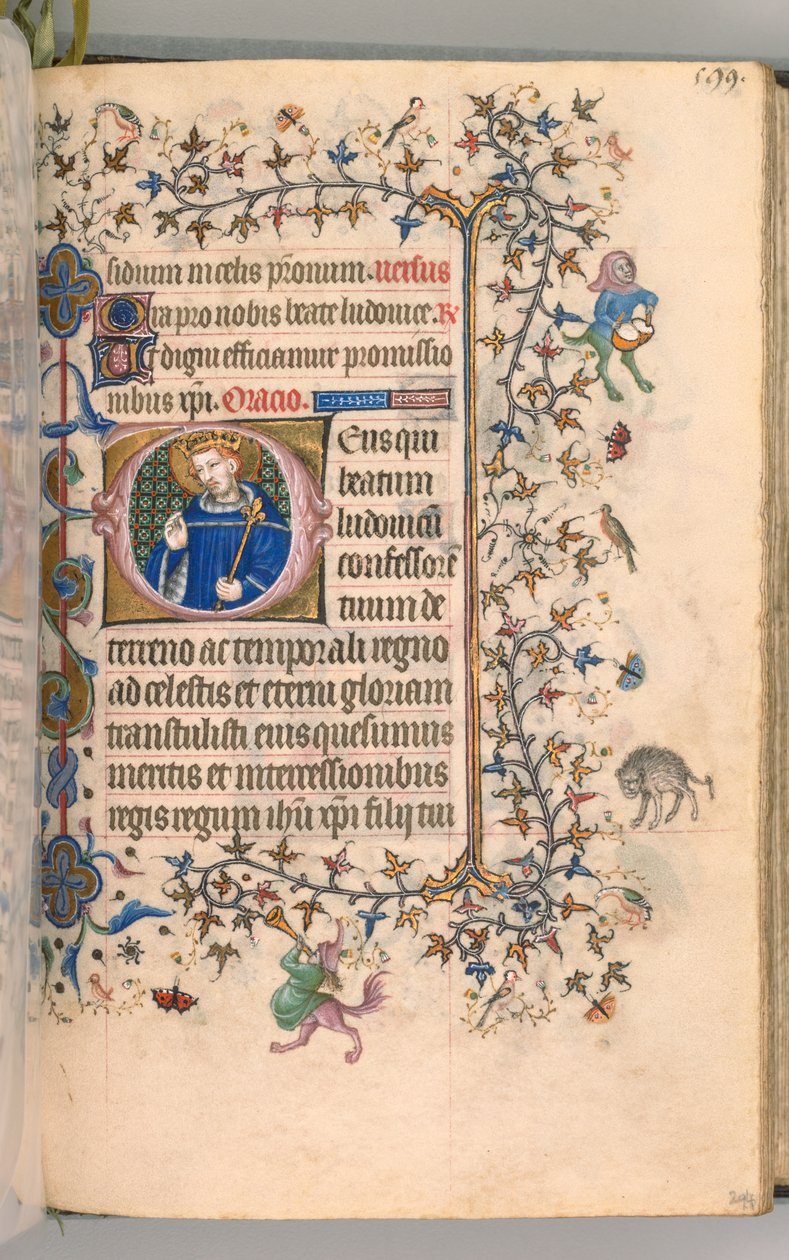 599.
sidium in celis pronum. versus
Ora pro nobis beate ludouice. R
Ut digni efficiamur promissio
nibus xpi. Oracio.
Deus qui
beatum
ludouicū
confessorē
tuum de
terreno ac temporali regno
ad celestis et eterni gloriam
transtulisti eius quesumus
meritis et intercessionibus
regis regum ihū xpi filij tui